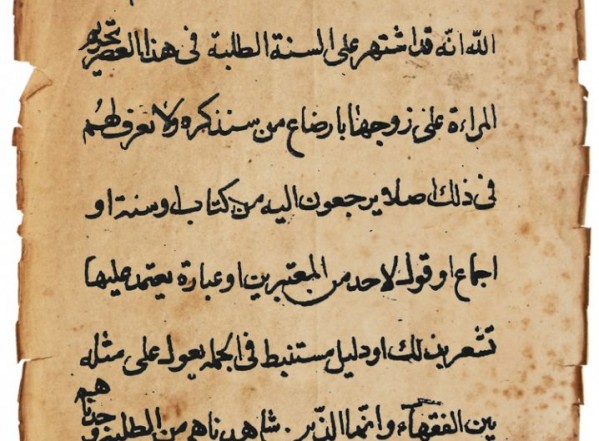 الله انه قد اشتهر على السنة الطلبة في هذا العصر تحريم
المراءة على زوجها بارضاع من سنذكره ولا نعرف لهم
في ذلك اصلا يرجعون اليه من كتاب او سنة او
اجماع او قول لاحد من المعتبرين او عبارة يعتمد عليها
تشعر بذلك او دليل مستنبط في الجملة يعول على مثله
بين الفقهاء وانما الذين شاهدناهم من الطلبة